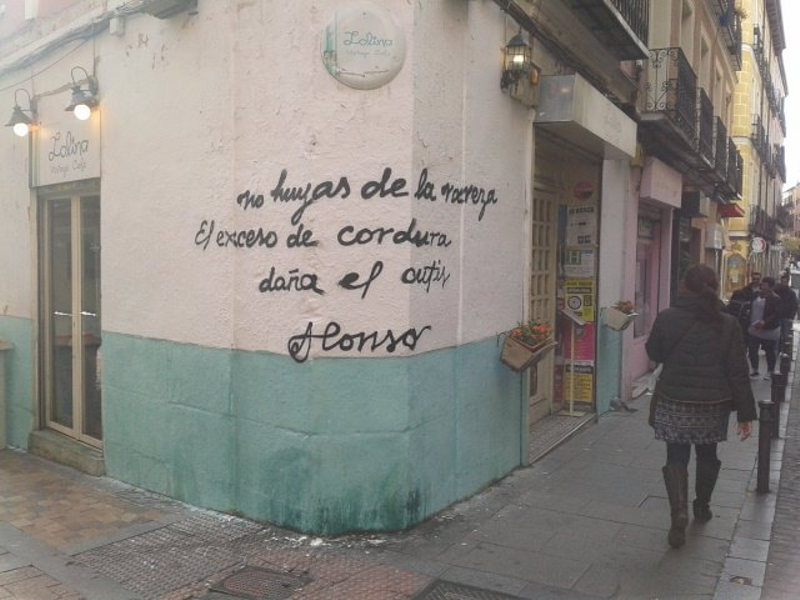 Lolina
Vintage Café
Lolina
Vintage Café
no huyas de la rareza
El exceso de cordura
daña el cutis
Alonso